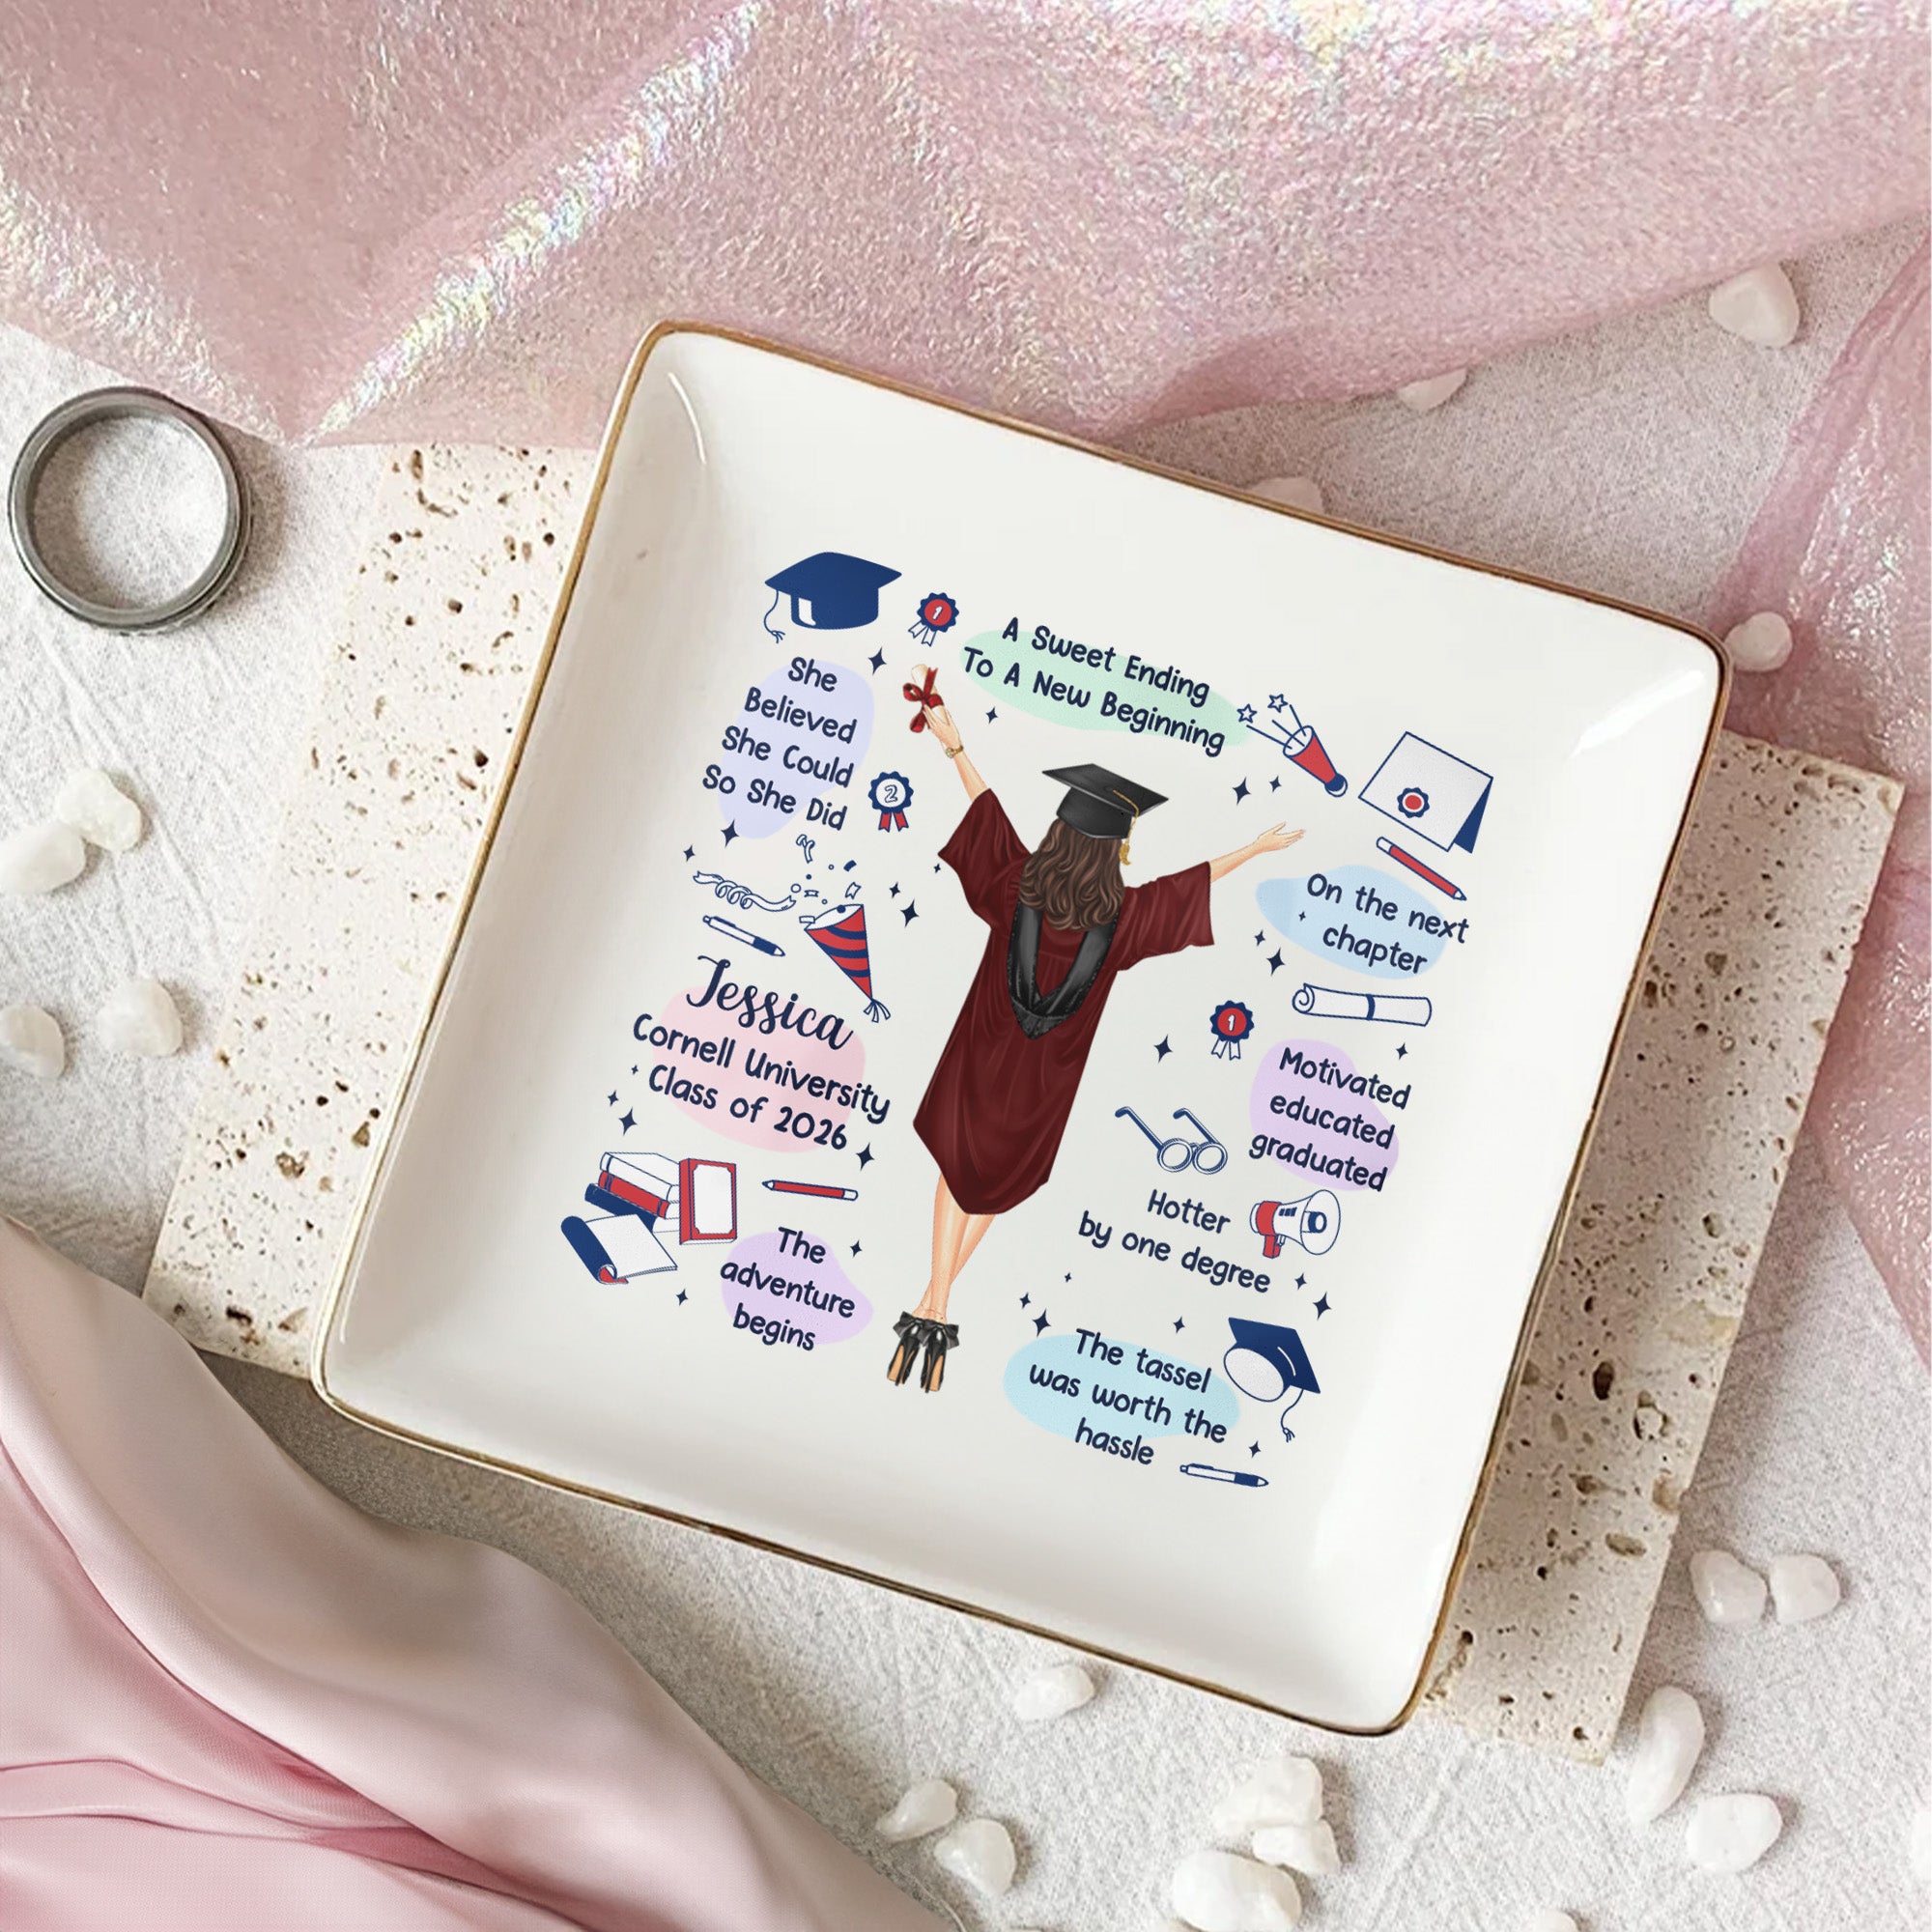 A Sweet Ending
To A New Beginning
1
She
Believed
She Could
So She Did
2
Jessica
Cornell University
Class of 2026
The
adventure
begins
On the next
chapter
1
Motivated
educated
graduated
Hotter
by one degree
The tassel
was worth the
hassle